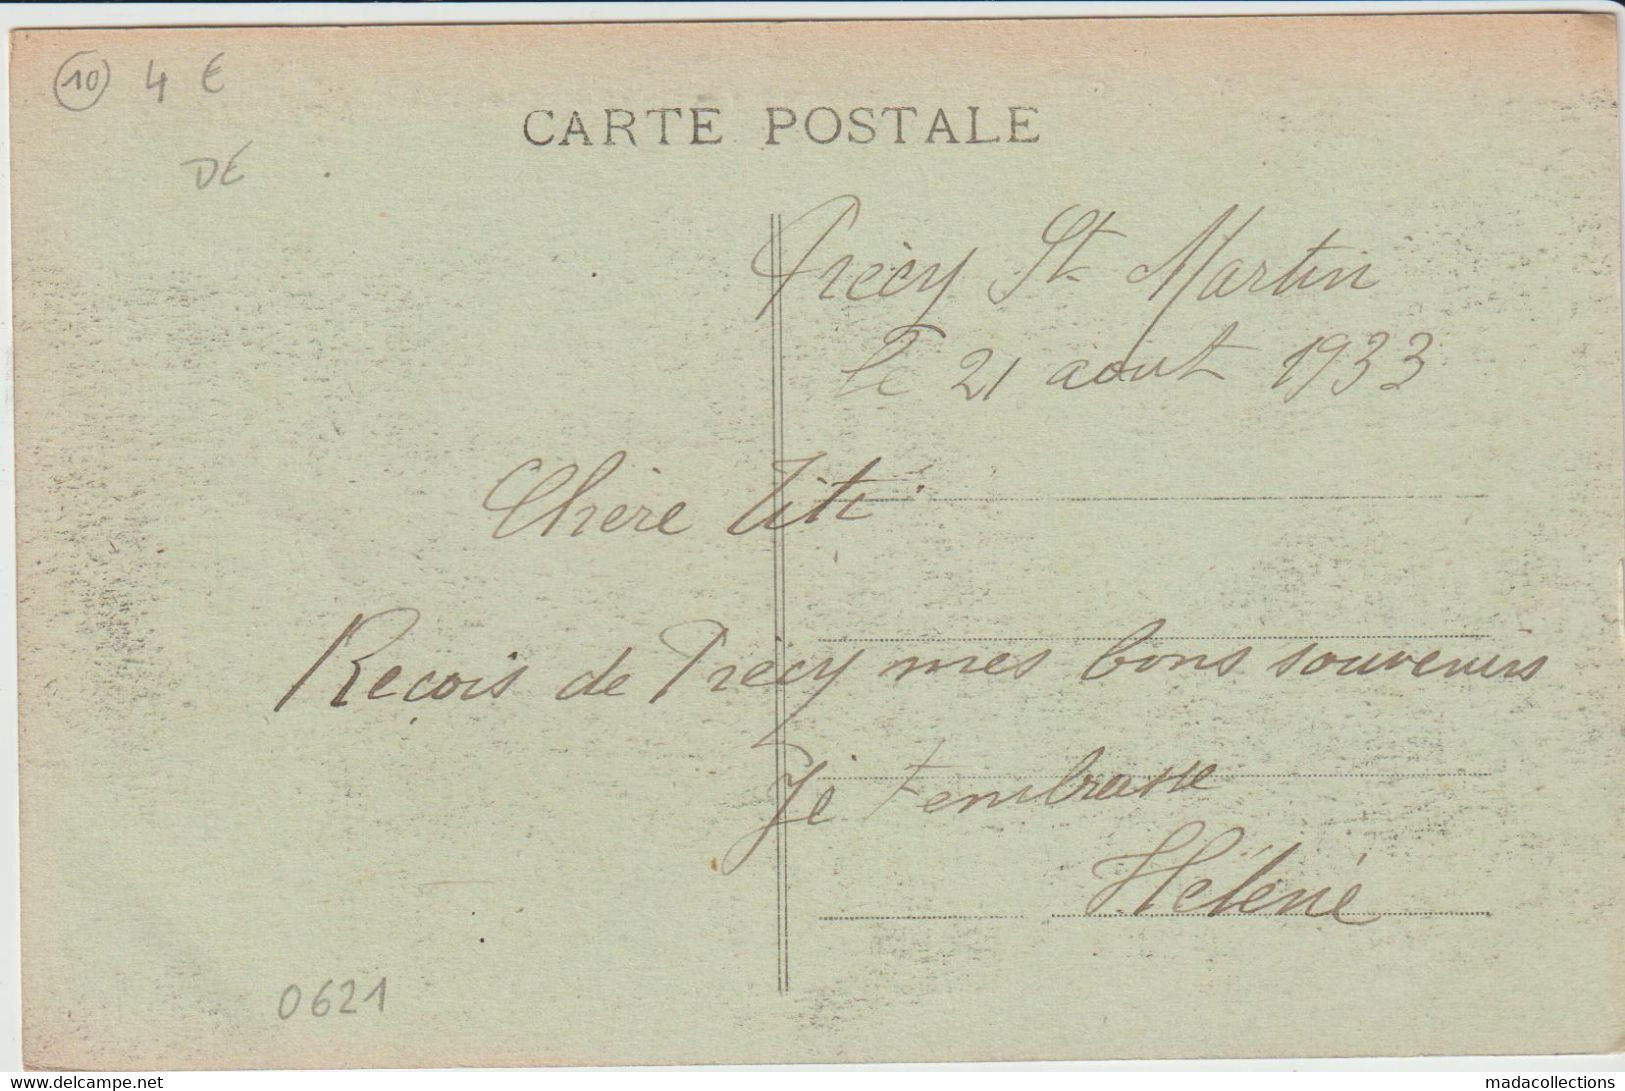 10 4 €
DÉ
CARTE POSTALE
Précy St Martin
le 21 aout 1933
Chère Titi
Reçois de Précy mes bons souvenirs
Je t'embrasse
Hélène
0621
www.delcampe.net
madacollections